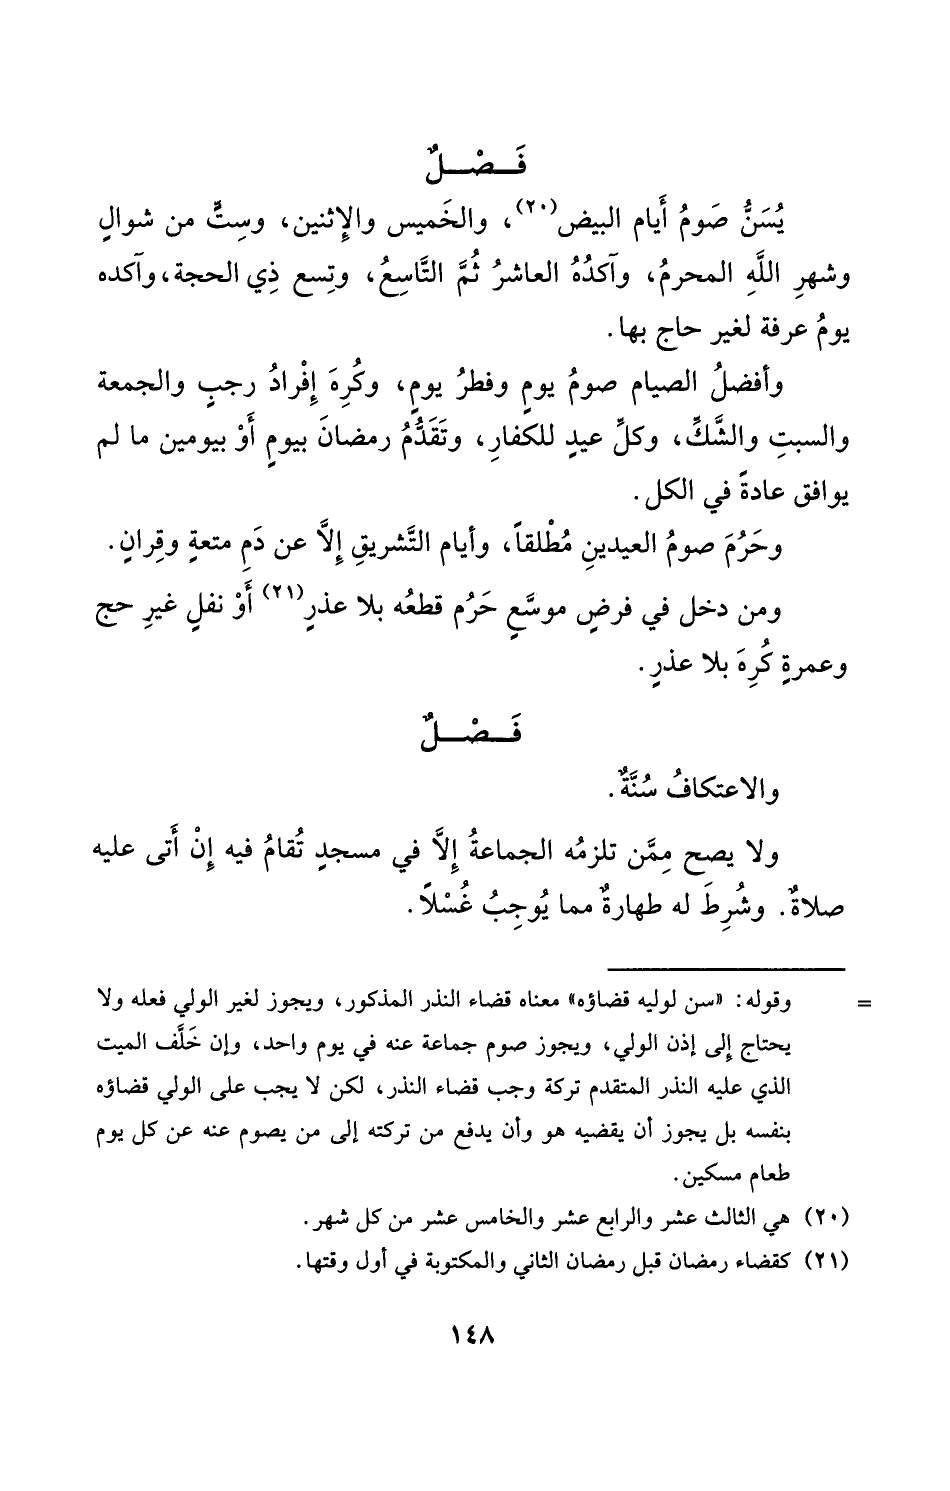 فَـصْـلٌ
يُسَنُّ صَومُ أَيام البيض(٢٠)، والخَميس والإِثنين، وسِتٍّ من شوالٍ
وشهرِ اللَّهِ المحرمُ، وآكدُهُ العاشرُ ثُمَّ التَّاسِعُ، وتِسع ذِي الحجة، وآكده
يومُ عرفة لغير حاج بها.
وأفضلُ الصيام صومُ يومٍ وفطرُ يومٍ، وكُرِهَ إِفْرادُ رجبٍ والجمعة
والسبتِ والشَّكِّ، وكلِّ عيدٍ للكفارِ، وتَقَدُّمُ رمضانَ بيومٍ أَوْ بيومين ما لم
يوافق عادةً في الكل.
وحَرُمَ صومُ العيدينِ مُطْلقاً، وأيام التَّشريقِ إِلاَّ عن دَمِ متعةٍ وقِرانٍ.
ومن دخل في فرضٍ موسَّعٍ حَرُم قطعُه بلا عذرٍ(٢١) أَوْ نفلٍ غيرِ حج
وعمرةٍ كُرِهَ بلا عذرٍ.
فَـصْـلٌ
والاعتكافُ سُنَّةٌ.
ولا يصح مِمَّن تلزمُه الجماعةُ إِلاَّ في مسجدٍ تُقامُ فيه إِنْ أَتى عليه
صلاةٌ. وشُرِطَ له طهارةٌ مما يُوجِبُ غُسْلاً.
= وقوله: «سن لوليه قضاؤه» معناه قضاء النذر المذكور، ويجوز لغير الولي فعله ولا
يحتاج إِلى إذن الولي، ويجوز صوم جماعة عنه في يوم واحد، وإن خَلَّف الميت
الذي عليه النذر المتقدم تركة وجب قضاء النذر، لكن لا يجب على الولي قضاؤه
بنفسه بل يجوز أن يقضيه هو وأن يدفع من تركته إلى من يصوم عنه عن كل يوم
طعام مسكين.
(٢٠) هي الثالث عشر والرابع عشر والخامس عشر من كل شهر.
(٢١) كقضاء رمضان قبل رمضان الثاني والمكتوبة في أول وقتها.
١٤٨